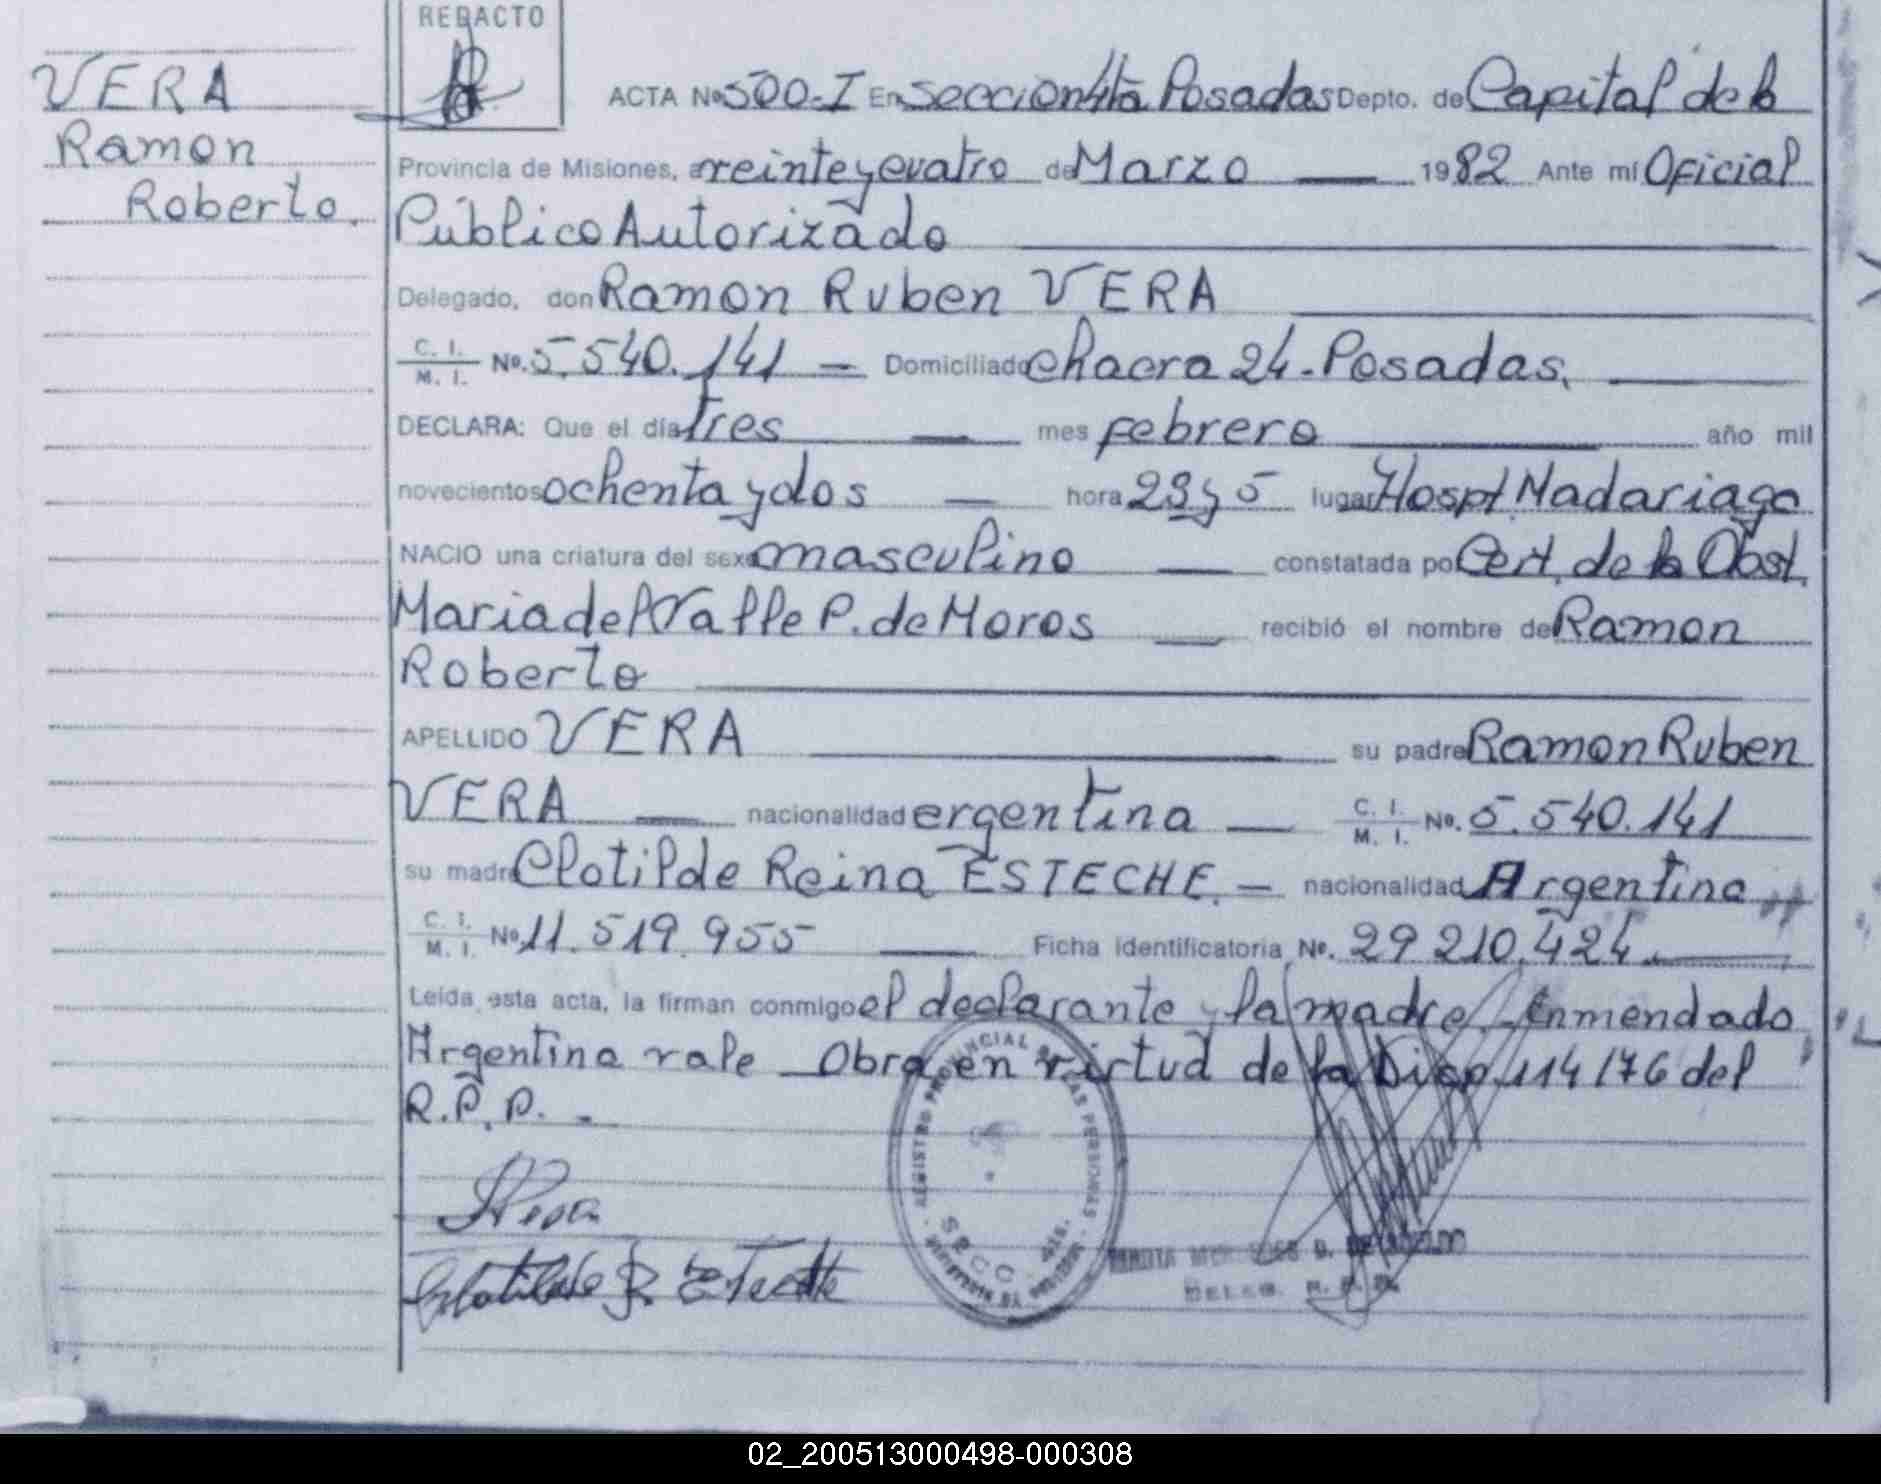 REDACTO
VERA
Ramon
Roberto.
ACTA Nº 500-I En seccion 4ta Posadas Depto. de Capital de la
Provincia de Misiones, a veinte y cuatro de Marzo 1982 Ante mí Oficial
Público Autorizado
Delegado, don Ramon Ruben VERA
C. I.
M. I. Nº. 5.540.141 Domiciliado chacra 24-Posadas.
DECLARA: Que el día tres mes febrero año mil
novecientos ochenta y dos hora 23 y 5 lugar Hospt Madariaga
NACIO una criatura del sexo masculino constatada por Cert. de la Obst.
Maria del Valle P. de Moros recibió el nombre de Ramon
Roberto
APELLIDO VERA su padre Ramon Ruben
VERA nacionalidad argentina C. I.
M. I. Nº. 5.540.141
su madre Clotilde Reina ESTECHE. nacionalidad Argentina
C. I.
M. I. Nº 11.519.955 Ficha identificatoria Nº. 29 210.424
Leída esta acta, la firman conmigo el declarante y la madre.-Enmendado
Argentina vale Obra en virtud de la Disp. 114/76 del
R.P.P.-
REGISTRO PROVINCIAL DE LAS PERSONAS
SECC. 4ta.
DELEG. R. P. P.
02_200513000498-000308